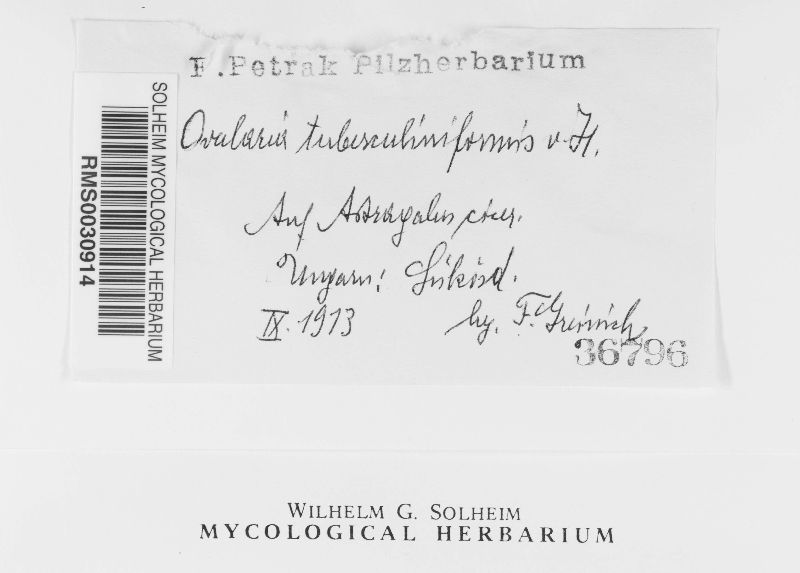 F. Petrak Pilzherbarium
Ovularia tuberculiniformis v. H.
Auf Astragalus cicer.
Ungarn: Sükösd.
IX. 1913
lg. F.
36796
SOLHEIM MYCOLOGICAL HERBARIUM
RMS0030914
WILHELM G. SOLHEIM
MYCOLOGICAL HERBARIUM